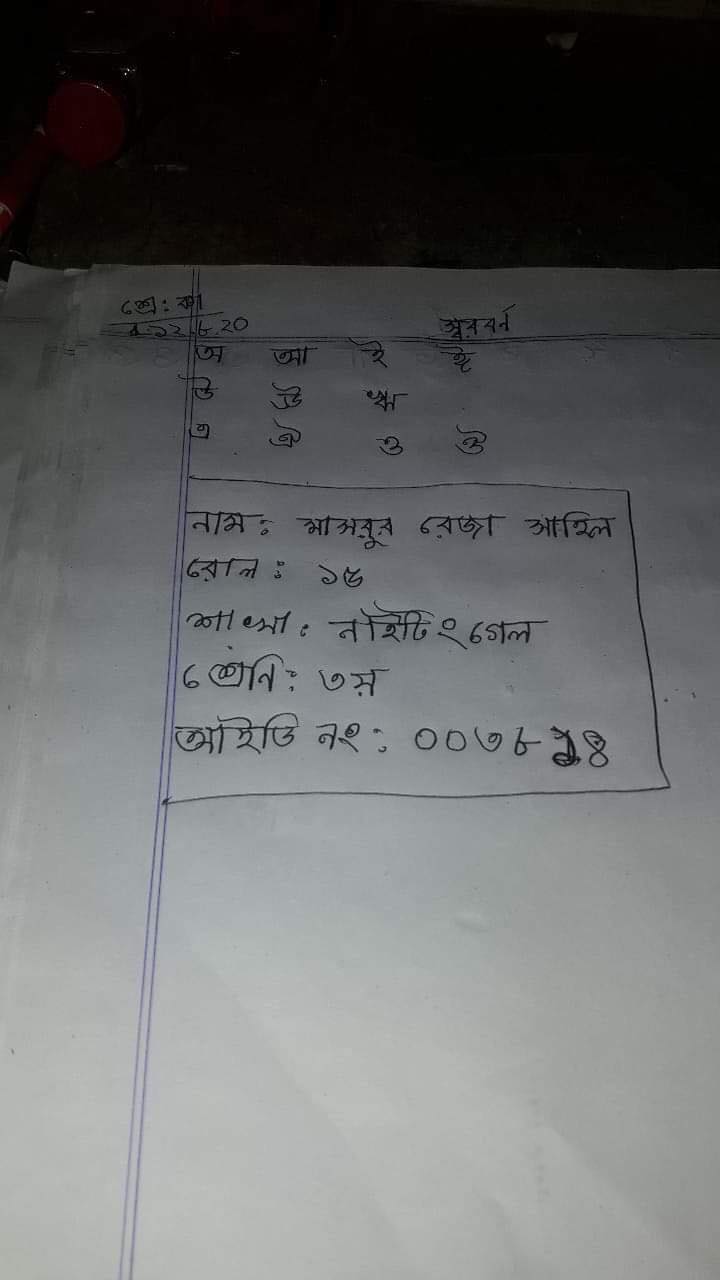 শ্রে: কা
তা.১২.৮.২০
স্বরবর্ন
অ আ ই ঈ
উ ঊ ঋ
এ ঐ ও ঔ
নাম: মাসরুর রেজা আহিল
রোল: ১৫
শাখা: নাইটিংগেল
শ্রেনি: ৩য়
আইডি নং: ০০৩৮১৪